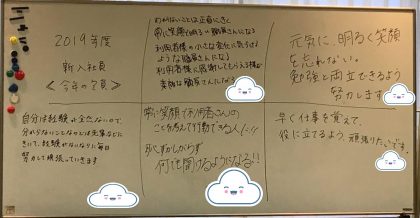 2019年度
新入社員
≪今年の目標≫
わからないことは正直にきく
常に笑顔で明るい職員になる
利用者様の小さな変化に気づける
ような職員さんになる
利用者様に感謝してもらえる様な
素敵な職員さんになる
元気に、明るく笑顔
を忘れない。
勉強と両立できるよう
努力します
自分は経験が全然ないので、
分からないことなどは先輩などに
きいて、経験がないなりに毎日
努力して頑張っていきます
常に笑顔で利用者さんの
ことを考えて行動できる人に!!
恥ずかしがらず
何でも聞けるようになる!!
早く仕事を覚えて、
役に立てるよう、頑張りたいです。